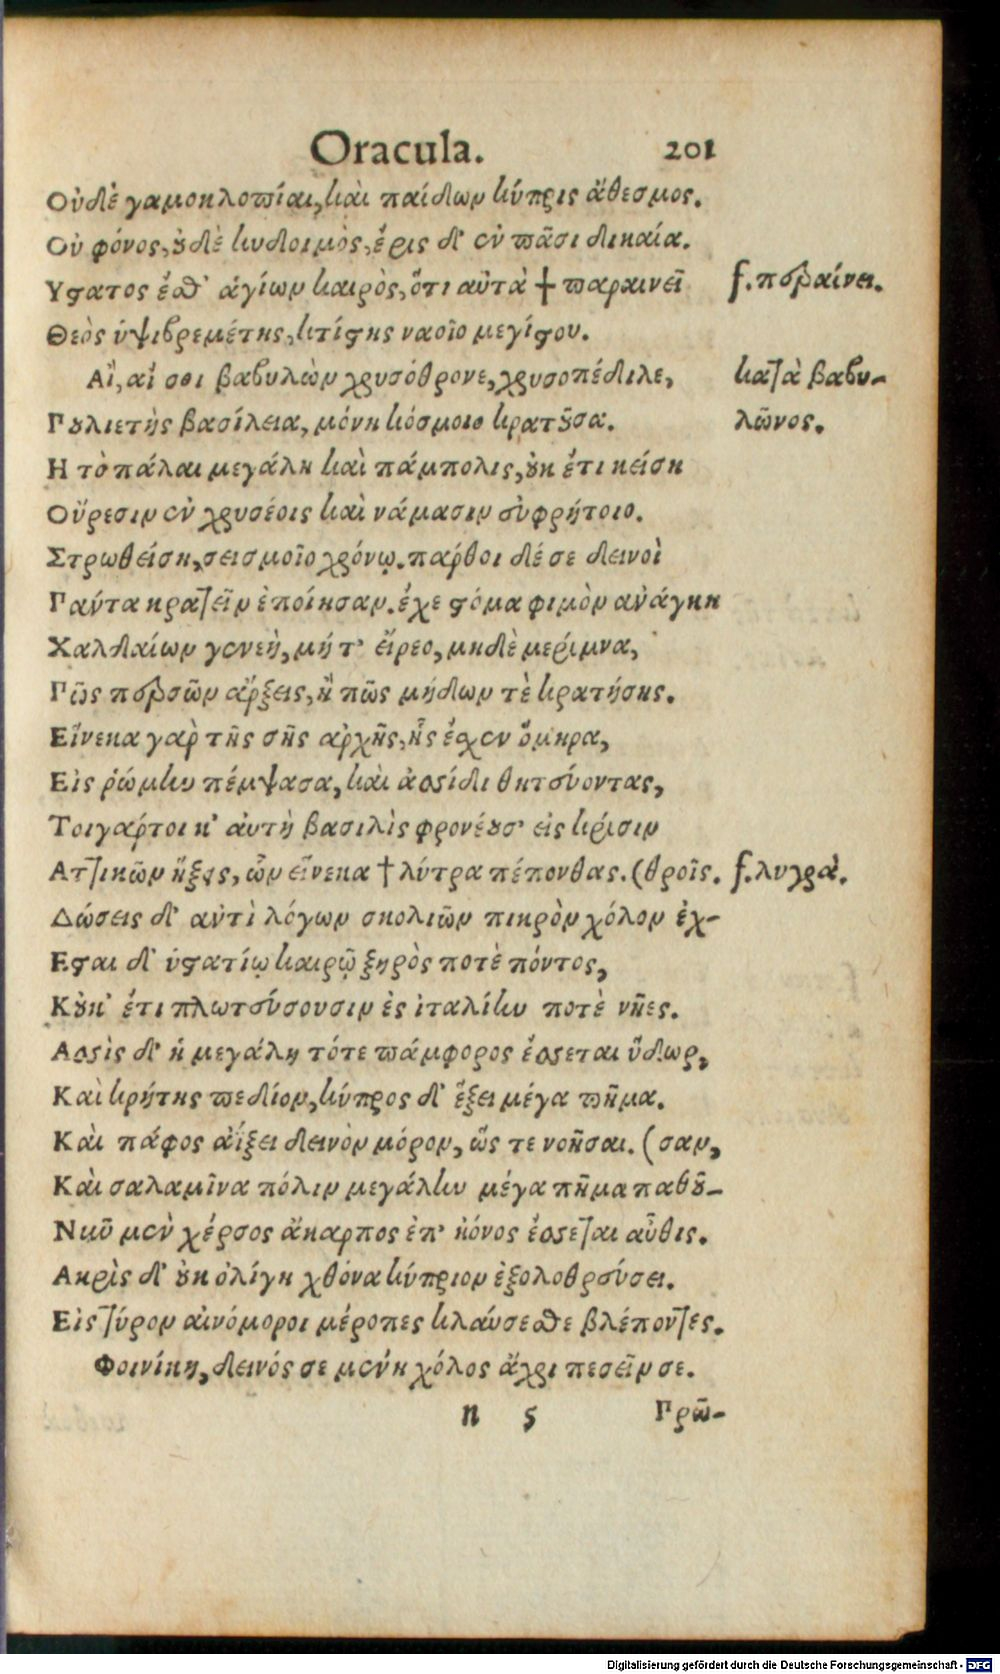 Oracula. 201
Οὐδὲ γαμοκλοπίαι, καὶ παίδων κύπρις ἄθεσμος.
Οὐ φόνος, οὐδὲ κυδοιμὸς, ἔρις δ' ἐν πᾶσι δικαία.
Υστατος ἔσθ' ἁγίων καιρὸς, ὅτι αὐτὰ † παραινεῖ f. περαίνει.
Θεὸς ὑψιβρεμέτης, κτίστης ναοῖο μεγίστου.
Αἲ, αἴ σοι βαβυλὼν χρυσόθρονε, χρυσοπέδιλε, κατὰ βαβυ-
Πουλιετὴς βασίλεια, μόνη κόσμοιο κρατοῦσα. λῶνος.
Η τὸ πάλαι μεγάλη καὶ πάμπολις, οὐκ ἔτι κείσῃ
Οὔρεσιν ἐν χρυσέοις καὶ νάμασιν εὐφρήτοιο.
Στρωθείσῃ, σεισμοῖο χρόνῳ. πάρθοι δέ σε δεινοὶ
Πάντα κρατεῖν ἐποίησαν. ἔχε στόμα φιμὸν ἀνάγκη
Χαλδαίων γενεὴ, μή τ' εἴρεο, μηδὲ μερίμνα,
Πῶς περσῶν ἄρξεις, ἢ πῶς μήδων τὲ κρατήσης.
Εἵνεκα γὰρ τῆς σῆς ἀρχῆς, ἧς ἔσχεν ὅμηρα,
Εἰς ῥώμην πέμψασα, καὶ ἀσσίδι θητεύοντας,
Τοιγάρτοι κ' αὐτὴ βασιλὶς φρονέουσ' εἰς κρίσιν
Αττικῶν ἥξεις, ὧν εἵνεκα † λύτρα πέπονθας. (θροῖς. f. λυγρά.
Δώσεις δ' ἀντὶ λόγων σκολιῶν πικρὸν χόλον ἐχ-
Εσται δ' ὑστατίῳ καιρῷ ξηρὸς ποτὲ πόντος,
Κοὐκ' ἔτι πλωτεύσουσιν ἐς ἰταλίην ποτὲ νῆες.
Ασσὶς δ' ἡ μεγάλη τότε πάμφορος ἔσσεται ὕδωρ,
Καὶ κρήτης πεδίον, κύπρος δ' ἕξει μέγα πῆμα.
Καὶ πάφος αἴξει δεινὸν μόρον, ὥς τε νοῆσαι. (σαν,
Καὶ σαλαμῖνα πόλιν μεγάλην μέγα πῆμα παθοῦ-
Νῦν μὲν χέρσος ἄκαρπος ἐπ' ἠόνος ἔσσεται αὖθις.
Ακρὶς δ' οὐκ ὀλίγη χθόνα κύπριον ἐξολοθρεύσει.
Εἰς τύρον αἰνόμοροι μέροπες κλαύσεσθε βλέποντες.
Φοινίκη, δεινός σε μένη χόλος ἄχρι πεσεῖν σε.
n 5 Πρῶ-
Digitalisierung gefördert durch die Deutsche Forschungsgemeinschaft - DFG